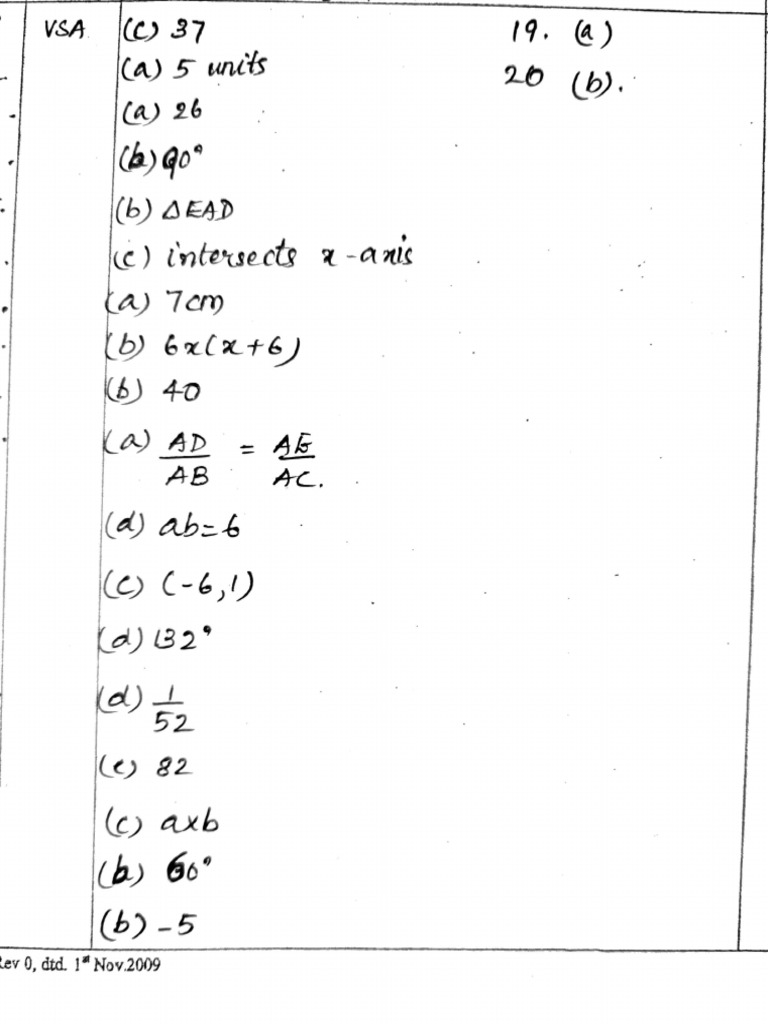 VSA (c) 37
(a) 5 units
(a) 26
(b) 90°
(b) △EAD
(c) intersects x-axis
(a) 7cm
(b) 6x(x+6)
(b) 40
(a) AD/AB = AE/AC.
(d) ab=6
(c) (-6,1)
(d) 132°
(d) 1/52
(c) 82
(c) axb
(b) 60°
(b) -5
19. (a)
20 (b).
Rev 0, dtd. 1st Nov.2009